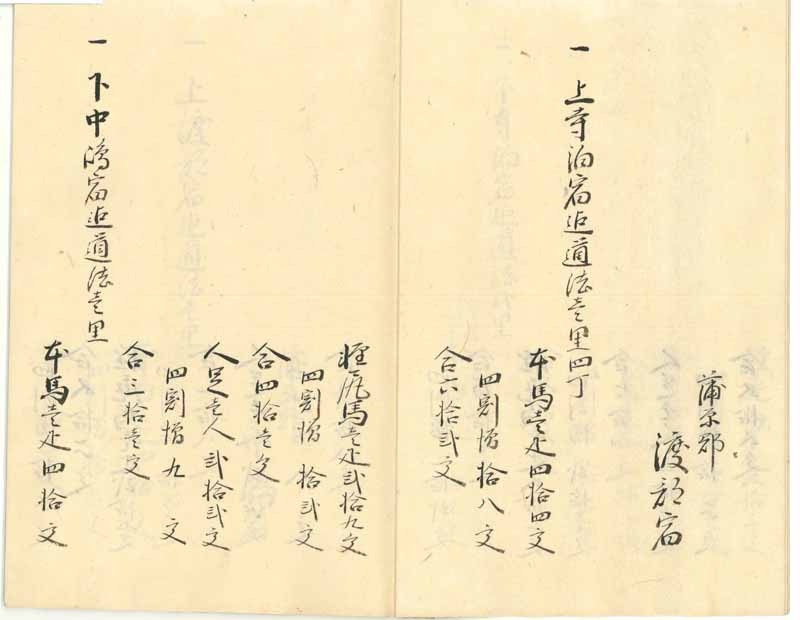 蒲原郡
渡部宿
一 上寺泊宿迄道法壱里四丁
本馬壱疋四拾四文
四割増拾八文
合六拾弐文
軽尻馬壱疋弐拾九文
四割増拾弐文
合四拾壱文
人足壱人弐拾弐文
四割増九文
合三拾壱文
一 下中嶋宿迄道法壱里
本馬壱疋四拾文